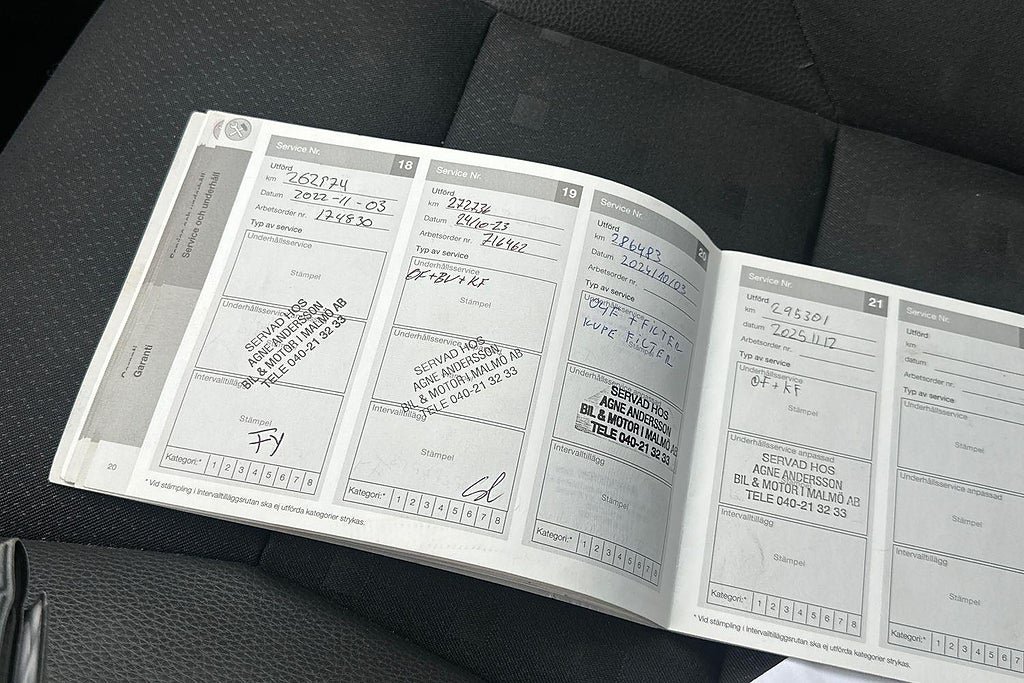 Service och underhåll
Garanti
20
Service Nr. 18
Utförd
km 262974
Datum 2022-11-03
Arbetsorder nr. 174830
Typ av service
Underhållsservice
Stämpel
Underhållsservice
SERVAD HOS
AGNE ANDERSSON
BIL & MOTOR I MALMÖ AB
TELE 040-21 32 33
Intervalltillägg
Stämpel
Kategori:* 1 2 3 4 5 6 7 8
* Vid stämpling i Intervalltilläggsrutan ska ej utförda kategorier strykas.
Service Nr. 19
Utförd
km 272736
Datum 24/10-23
Arbetsorder nr. 716462
Typ av service
Underhållsservice
OF+BV+KF
Stämpel
Underhållsservice
SERVAD HOS
AGNE ANDERSSON
BIL & MOTOR I MALMÖ AB
TELE 040-21 32 33
Intervalltillägg
Stämpel
Kategori:* 1 2 3 4 5 6 7 8
Service Nr. 20
Utförd
km 286483
Datum 2024/10/03
Arbetsorder nr.
Typ av service
Underhållsservice
FILTER
KUPE FILTER
Stämpel
Underhållsservice
SERVAD HOS
AGNE ANDERSSON
BIL & MOTOR I MALMÖ AB
TELE 040-21 32 33
Intervalltillägg
Kategori:* 1 2 3 4 5 6 7 8
Service Nr. 21
Utförd
km 295301
datum 20251117
Arbetsorder nr.
Typ av service
Underhållsservice
OF+KF
Stämpel
Underhållsservice anpassad
SERVAD HOS
AGNE ANDERSSON
BIL & MOTOR I MALMÖ AB
TELE 040-21 32 33
Intervalltillägg
Stämpel
Kategori:* 1 2 3 4 5 6 7 8
* Vid stämpling i Intervalltilläggsrutan ska ej utförda kategorier strykas.
Service Nr.
Utförd
km
datum
Arbetsorder nr.
Typ av service
Underhållsservice
Stämpel
Underhållsservice anpassad
Stämpel
Intervalltillägg
Stämpel
Kategori:* 1 2 3 4 5 6 7